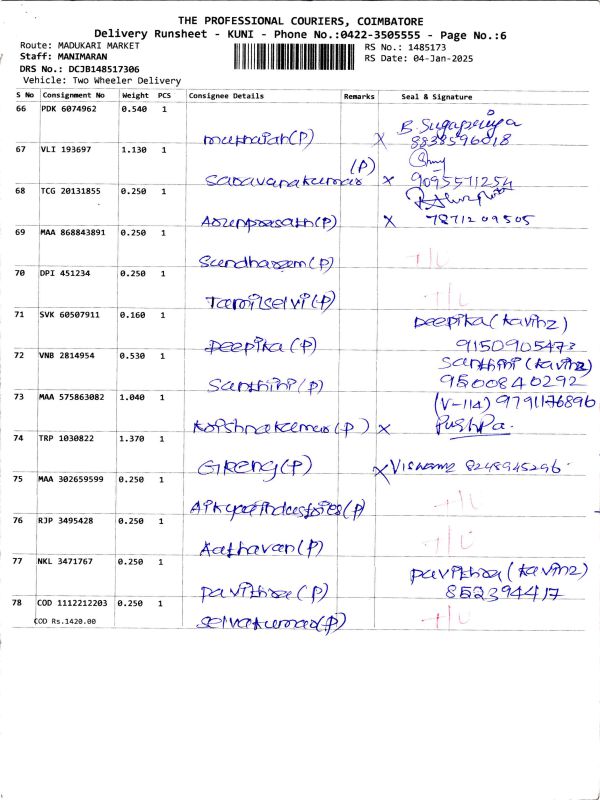 THE PROFESSIONAL COURIERS, COIMBATORE
Delivery Runsheet - KUNI - Phone No.:0422-3505555 - Page No.:6
Route: MADUKARI MARKET
RS No.: 1485173
Staff: MANIMARAN
RS Date: 04-Jan-2025
DRS No.: DCJB148517306
Vehicle: Two Wheeler Delivery
S No Consignment No Weight PCS Consignee Details Remarks Seal & Signature
66 PDK 6074962 0.540 1
muthaiah(P) X B. Sugapriya
8838596018
67 VLI 193697 1.130 1
Saravanakumar (P) X 9095571254
68 TCG 20131855 0.250 1
Arunprasath(P) X 7871209505
69 MAA 868843891 0.250 1
Sundharam(P)
70 DPI 451234 0.250 1
Tamilselvi(P)
71 SVK 60507911 0.160 1
Deepika(P) Deepika(kavinz)
9150905473
72 VNB 2814954 0.530 1
Santhini(P) Santhini(kavinz)
9500840292
73 MAA 575863082 1.040 1
(V-114) 9791176896
Krishnakumar(P) X Pushpa.
74 TRP 1030822 1.370 1
Gireng(P) X 8248945296
75 MAA 302659599 0.250 1
76 RJP 3495428 0.250 1
Kathavan(P)
77 NKL 3471767 0.250 1
Pavithra(P) Pavithra(kavinz)
852394417
78 COD 1112212203 0.250 1
COD Rs.1420.00
Selvakumar(P)